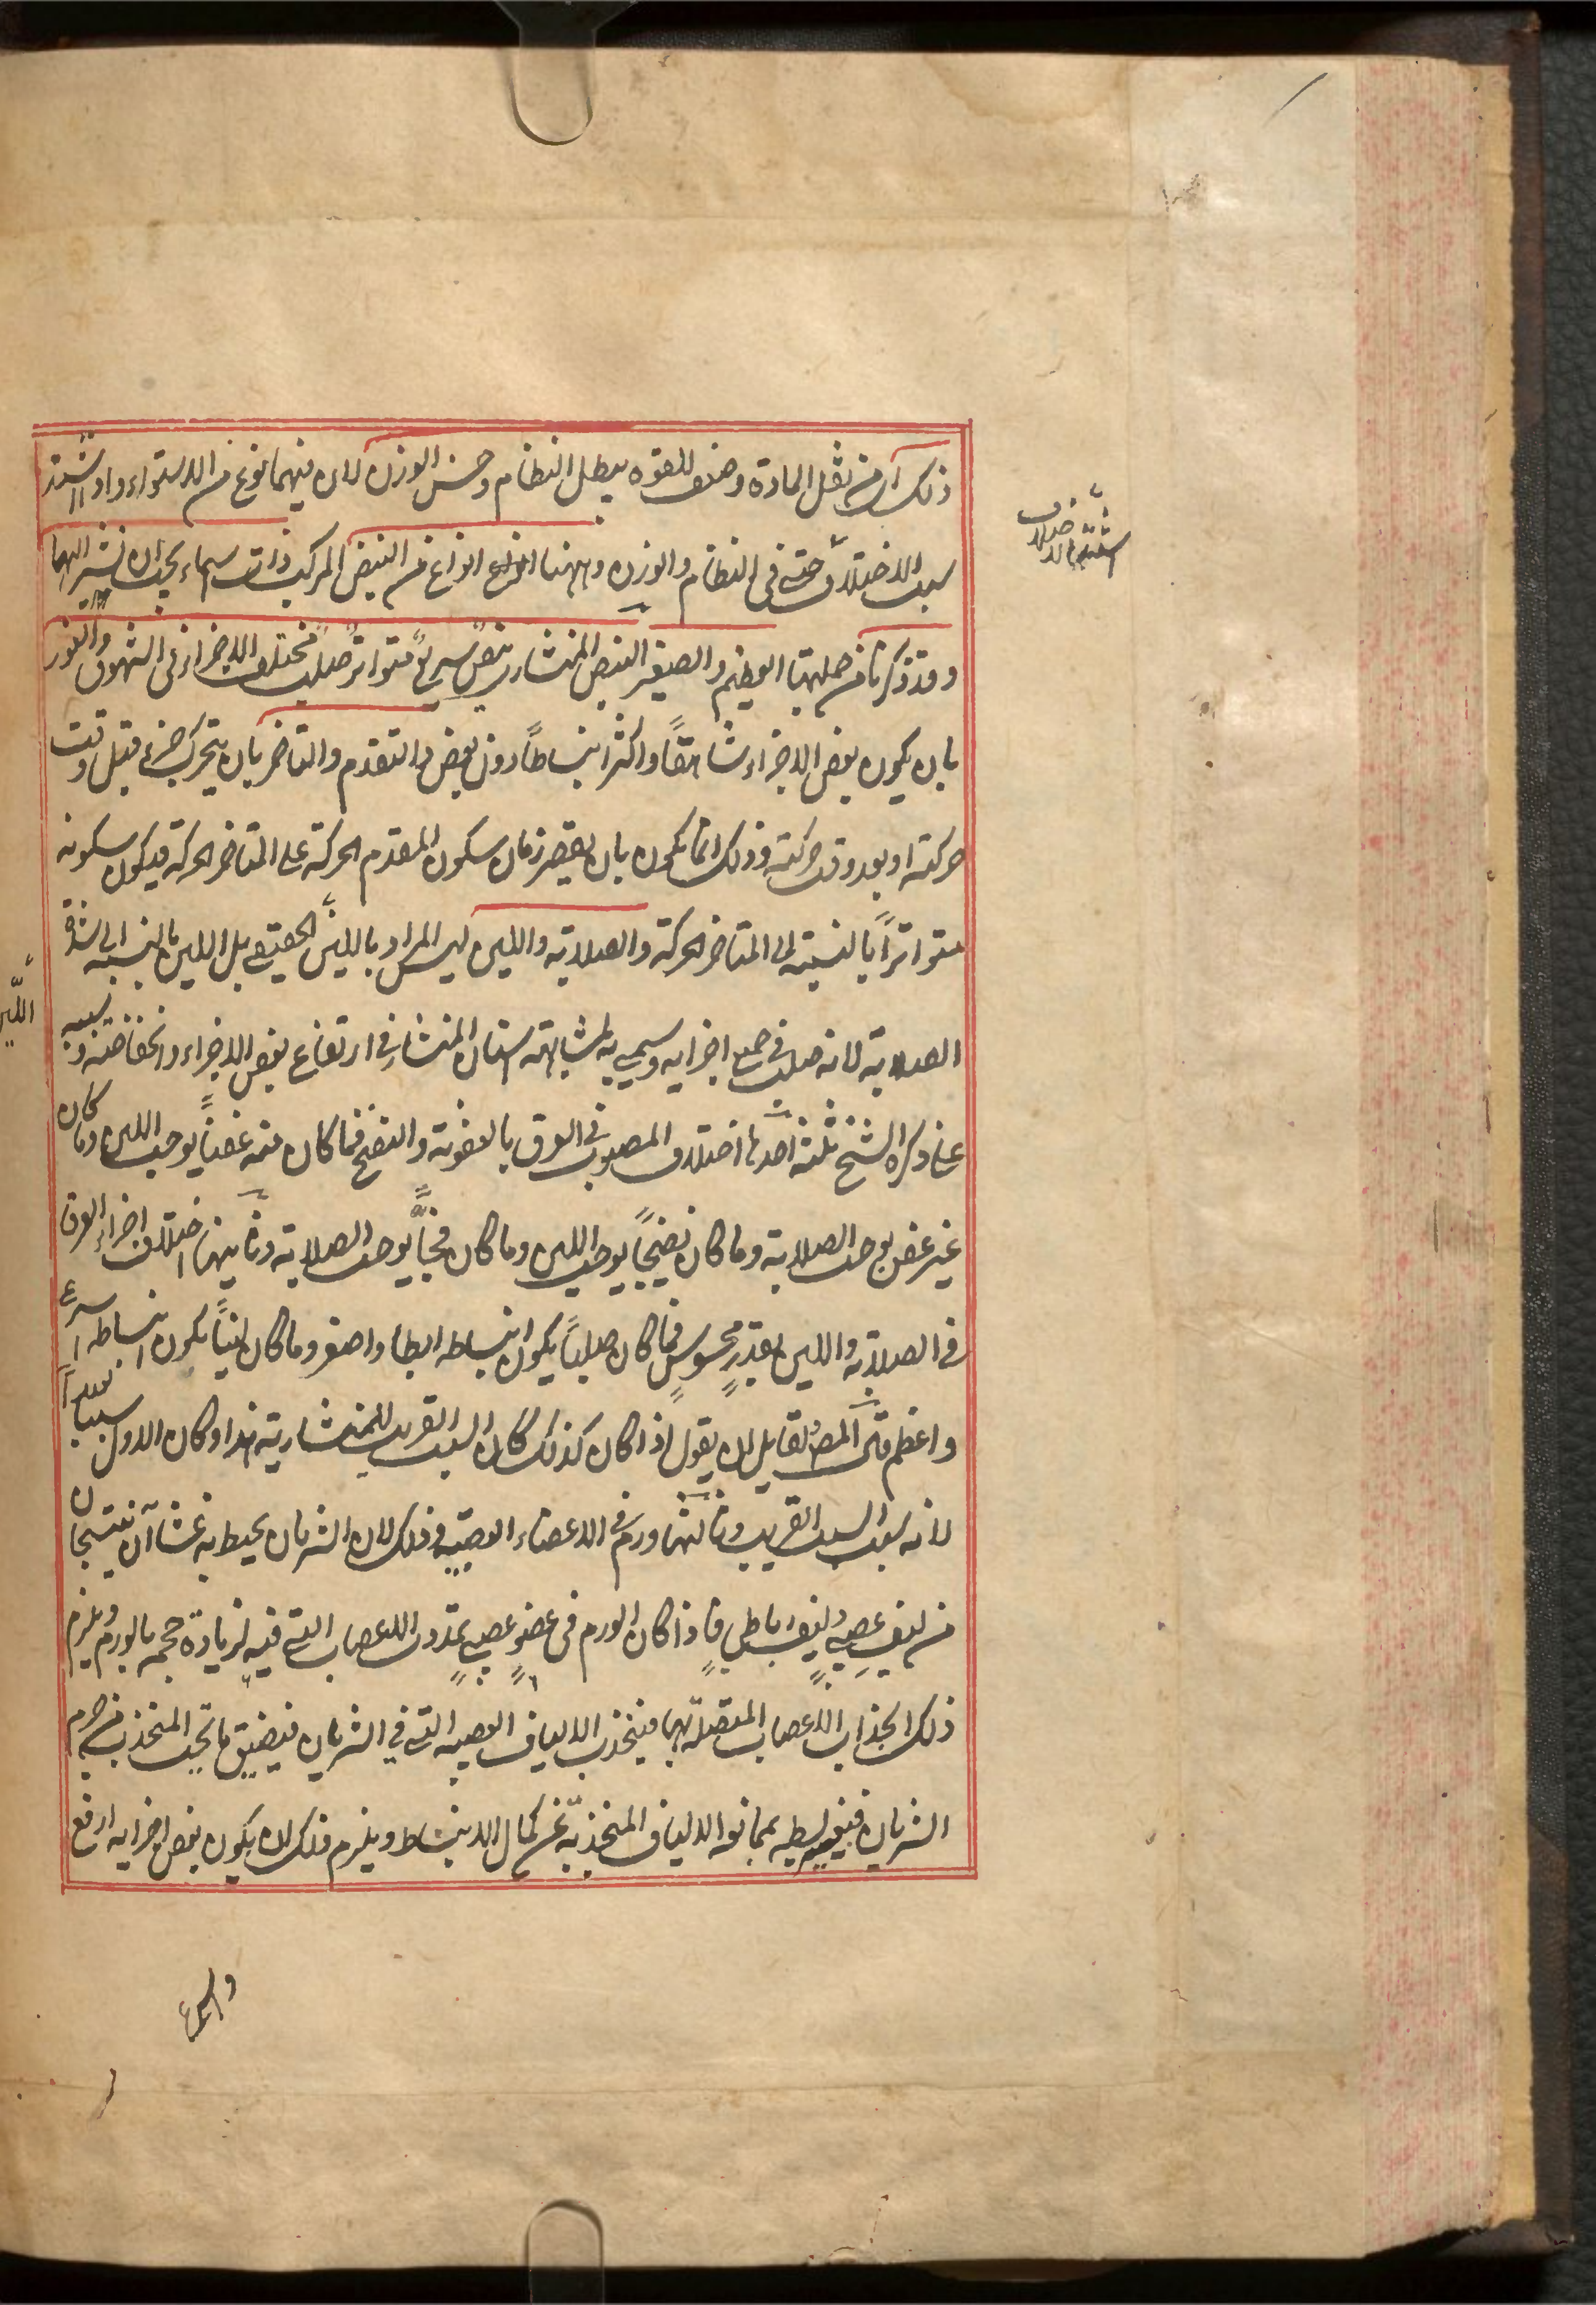 ذلك اى من ثقل المادة وضعف للقوه يبطل النظام وحسن الوزن لان فيهما نوع من الاستواء واذا اشتد
سبب الاختلاف حتى فى النظام والوزن وههنا انواع من النبض المركب ذات اسماء يجب ان نشير اليها
وقد ذكرنا من جملتها العظيم والصغير النبض المنشارى نبض سريع متواتر صلب مختلف الاجزاء فى الشهوق والغور
بان يكون بعض الاجزاء شاهقًا واكثر انبساطًا دون بعض والتقدم والتاخر بان يتحرك جزء قبل وقت
حركته او بعد وقت حركته وذلك انما يكون بان يقصر زمان سكون المقدم الحركة على المتاخر الحركة فيكون سكونه
متواترًا بالنسبة الى المتاخر الحركة والصلابة واللين ليس المراد باللين الحقيقى بل اللين بالنسبة الى شدة
الصلابة لانه صلب فى جميع اجزايه وسمى به لمشابهته اسنان المنشار فى ارتفاع بعض الاجزاء وانخفاضه وسببه
على ما ذكره الشيخ ثلثة احدها اختلاف المصبوب فى العرق بالعفونة والنضج فما كان منه عفنًا يوجب اللين وما كان
غير عفن يوجب الصلابة وما كان نضيجًا يوجب اللين وما كان فجًّا يوجب الصلابة وثانيها اختلاف اجزاء العرق
فى الصلابة واللين بقدرٍ محسوسٍ فما كان صلبًا يكون انبساطه ابطا واصغر وما كان لينًا يكون انبساطه اسرع
واعظم قال المص لقايل ان يقول اذا كان كذلك كان السبب القريب للمنشارية هذا وكان الاول سببا بعيدا
لانه سبب السبب القريب وثالثها ورم فى الاعضاء العصبية وذلك لان الشريان يحيط به غشاآن ينتسجان
من ليفٍ عصبىٍ وليفٍ رباطىٍ فاذا كان الورم فى عضوٍ عصبىٍ تمددت الاعصاب التى فيه لزيادة حجمه بالورم ويلزم
ذلك انجذاب الاعصاب المتصلة بها فينجذب الالياف العصبية التى فى الشريان فيضيق ما تحت المنجذب من جرم
الشريان فيعسر بسطه بممانعة الالياف المنجذبة عن كمال الانبساط ويلزم ذلك ان يكون بعض اجزايه ارفع
واسرع
اشتد الاختلاف
اللين